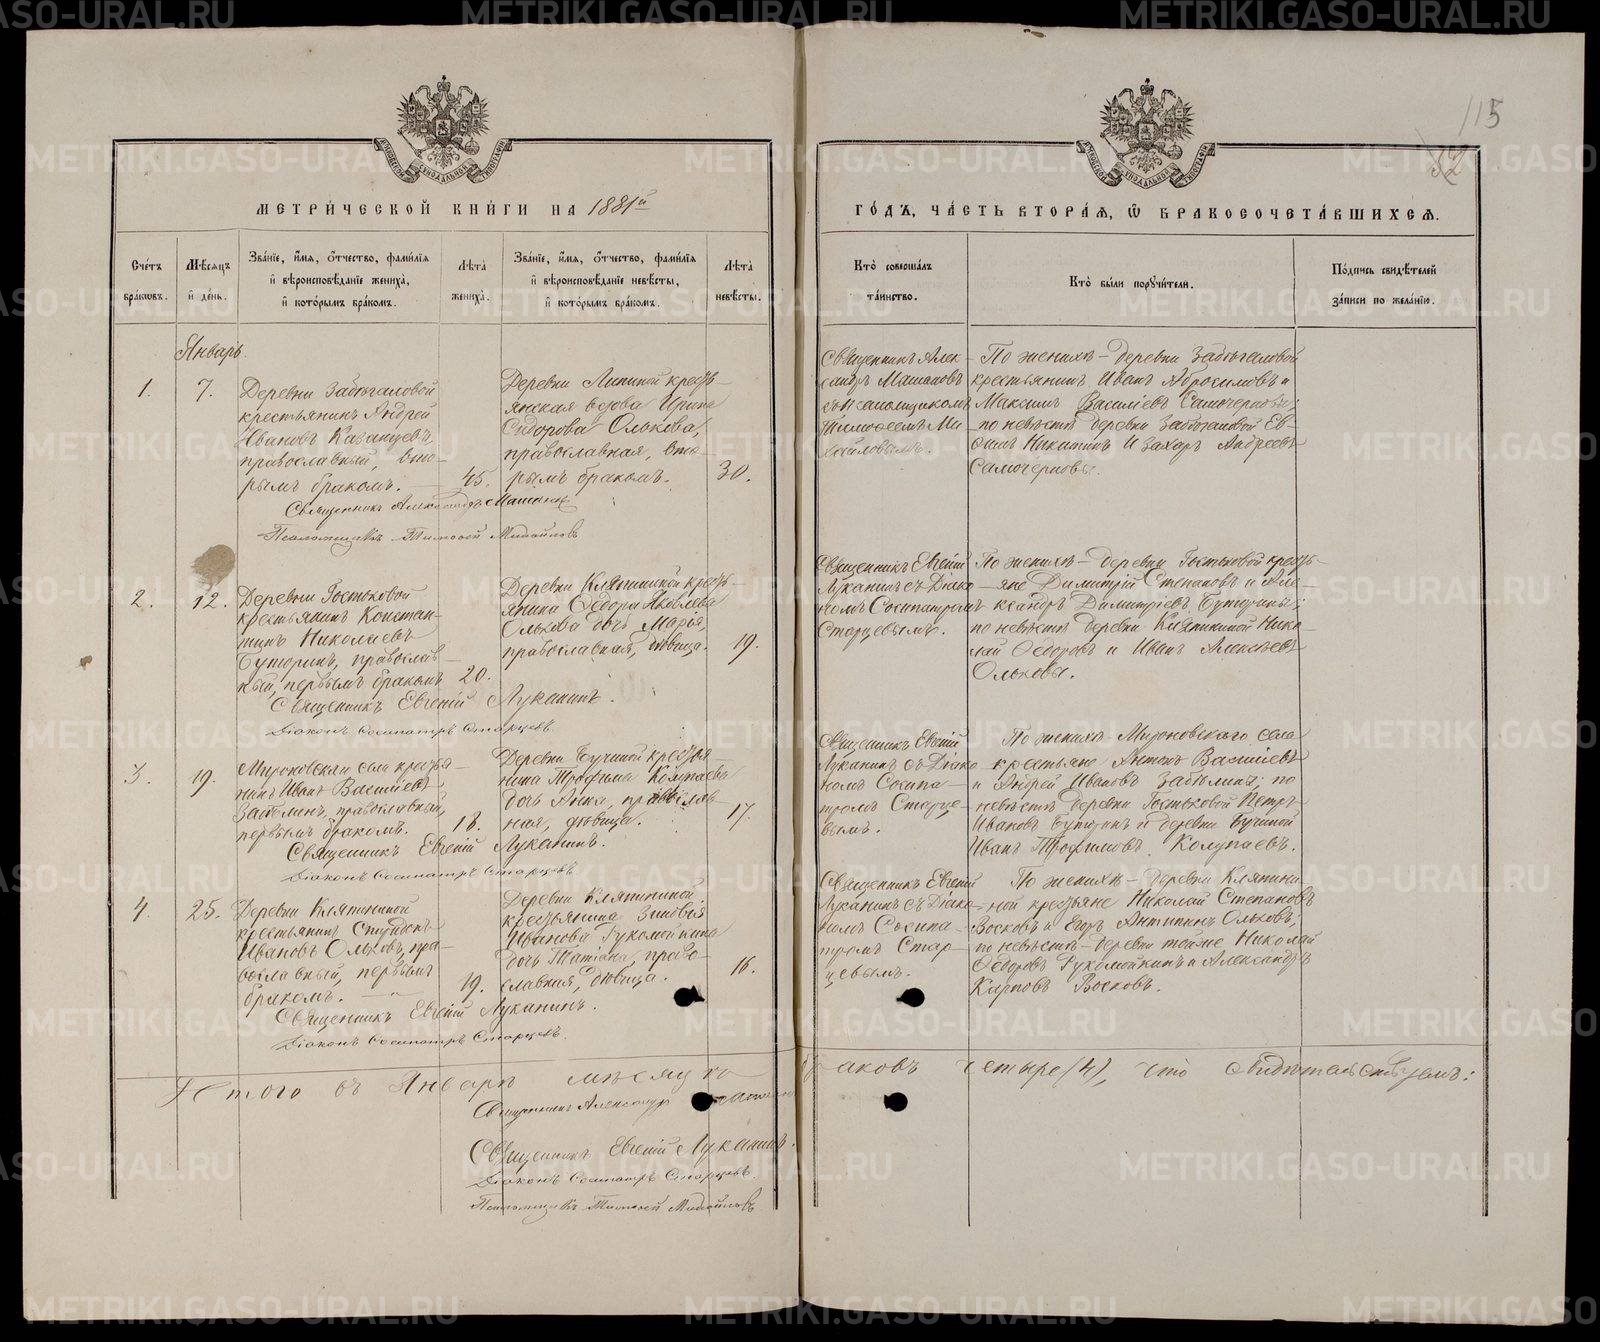 115
52
МОСКОВСКОЙ СѴНОДАЛЬНОЙ ТИПОГРАФІИ
МОСКОВСКОЙ СѴНОДАЛЬНОЙ ТИПОГРАФІИ
МЕТРИ́ЧЕСКОЙ КНИ́ГИ НА 1881й
ГО́ДЪ, ЧА́СТЬ ВТОРА́Ѧ, Ѿ БРАКОСОЧЕТА́ВШИХСѦ.
Сче́тъ
бра́ковъ.
Мѣ́сѧцъ
и҆ де́нь.
Зва́нїе, и҆́мѧ, ѻ҆́тчество, фами́лїѧ
и҆ вѣроисповѣ́данїе жениха̀,
и҆ кото́рымъ бра́комъ.
Лѣ́та
жениха̀.
Зва́нїе, и҆́мѧ, ѻ҆́тчество, фами́лїѧ
и҆ вѣроисповѣ́данїе невѣ́сты,
и҆ кото́рымъ бра́комъ.
Лѣ́та
невѣ́сты.
Кто̀ соверша́лъ
та́инство.
Кто̀ бы́ли порꙋчи́тели.
По́дпись свидѣ́телей
за́писи по жела́нїю.
Январь.
1.
7.
Деревни Забѣгаловой
крестьянинъ Андрей
Ивановъ Казанцевъ,
православный, вто-
рымъ бракомъ.
45.
Деревни Липиной кресть-
янская вдова Ирина
Сидорова Олькова,
православная, вто-
рымъ бракомъ.
30.
Священникъ Алек-
сандръ Машановъ
съ Псаломщикомъ
Тимоѳеемъ Ми-
хайловымъ.
По женихѣ - деревни Забѣгаловой
крестьянинъ Иванъ Абросимовъ и
Максимъ Василіевъ Самочерновы;
по невѣстѣ деревни Забѣгаловой Ев-
симъ Никитинъ и Захаръ Андреевъ
Самочерновы.
Священникъ Александръ Машановъ
Псаломщикъ Тимоѳей Михайловъ
2.
12.
Деревни Гостьковой
крестьянинъ Констан-
тинъ Николаевъ
Бутюринъ, православ-
ный, первымъ бракомъ
20.
Деревни Кляпининой кресть-
янина Ѳедора Яковлева
Олькова дочь Марья,
православная, дѣвица.
19.
Священникъ Евгеній
Луканинъ съ Діако-
номъ Сосипатромъ
Старцевымъ.
По женихѣ - деревни Гостьковой кресть-
яне Димитрій Степановъ и Але-
ксандръ Димитріевъ Бутюрины;
по невѣстѣ деревни Кляпининой Нико-
лай Ѳедоровъ и Иванъ Алексѣевъ
Ольковы.
Священникъ Евгеній Луканинъ.
Діаконъ Сосипатръ Старцевъ.
3.
19.
Мироновскаго села крестья-
нинъ Иванъ Василіевъ
Забѣлинъ, православный,
первымъ бракомъ.
18.
Деревни Бучиной крестья-
нина Трофима Колупаева
дочь Анна, православ-
ная, дѣвица.
17.
Священникъ Евгеній
Луканинъ съ Діако-
номъ Сосипа-
тромъ Старце-
вымъ.
По женихѣ - Мироновскаго села
крестьяне Антонъ Василіевъ
и Андрей Ивановъ Забѣлины; по
невѣстѣ деревни Гостьковой Петръ
Ивановъ Бутюринъ и деревни Бучиной
Иванъ Трофимовъ Колупаевъ.
Священникъ Евгеній Луканинъ.
Діаконъ Сосипатръ Старцевъ.
4.
25.
Деревни Кляпининой
крестьянинъ Спиридонъ
Ивановъ Ольковъ, пра-
вославный, первымъ
бракомъ.
19.
Деревни Кляпининой
крестьянина Зиновія
Иванова Рукомойкина
дочь Татіана, право-
славная, дѣвица.
16.
Священникъ Евгеній
Луканинъ съ Діако-
номъ Сосипа-
тромъ Стар-
цевымъ.
По женихѣ - деревни Кляпини-
ной крестьяне Николай Степановъ
Восковъ и Егоръ Антипинъ Ольковъ;
по невѣстѣ - деревни тойже Николай
Ѳедоровъ Рукомойкинъ и Александръ
Карповъ Восковъ.
Священникъ Евгеній Луканинъ.
Діаконъ Сосипатръ Старцевъ.
Итого въ Январѣ мѣсяцѣ браковъ четыре (4), что свидѣтельствуемъ:
Священникъ Александръ Машановъ
Священникъ Евгеній Луканинъ.
Діаконъ Сосипатръ Старцевъ.
Псаломщикъ Тимоѳей Михайловъ
METRIKI.GASO-URAL.RU